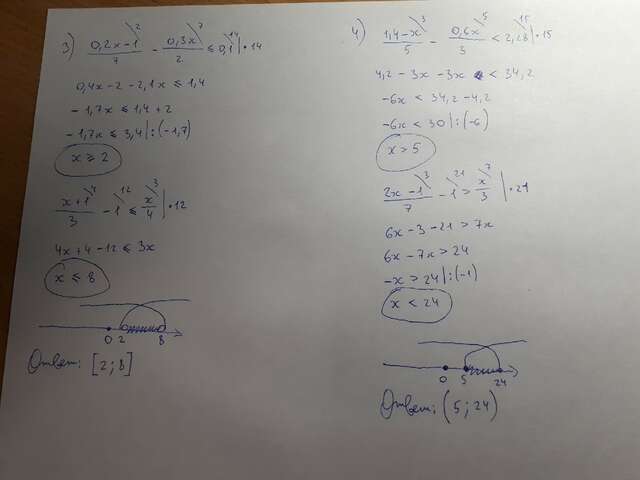 3) (0,2x-1)/7 \2 - 0,3x/2 \7 ≤ 0,1 \14 | · 14
0,4x - 2 - 2,1x ≤ 1,4
- 1,7x ≤ 1,4 + 2
- 1,7x ≤ 3,4 | : (-1,7)
x ≥ 2
(x+1)/3 \4 - 1 \12 ≤ x/4 \3 | · 12
4x + 4 - 12 ≤ 3x
x ≤ 8
0 2 8
Ответ: [2; 8]
4) (1,4-x)/5 \3 - 0,6x/3 \5 < 2,28 \15 | · 15
4,2 - 3x - 3x < 34,2
-6x < 34,2 - 4,2
-6x < 30 | : (-6)
x > 5
(2x-1)/7 \3 - 1 \21 > x/3 \7 | · 21
6x - 3 - 21 > 7x
6x - 7x > 24
-x > 24 | : (-1)
x < 24
0 5 24
Ответ: (5; 24)